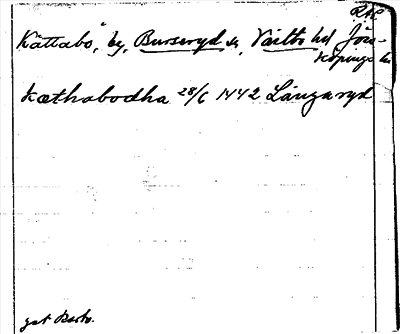 Kättabo, by, Burseryd sn, Västbo hd Jön-
köpings län
Kæthabodha 28/6 1442 Långaryd